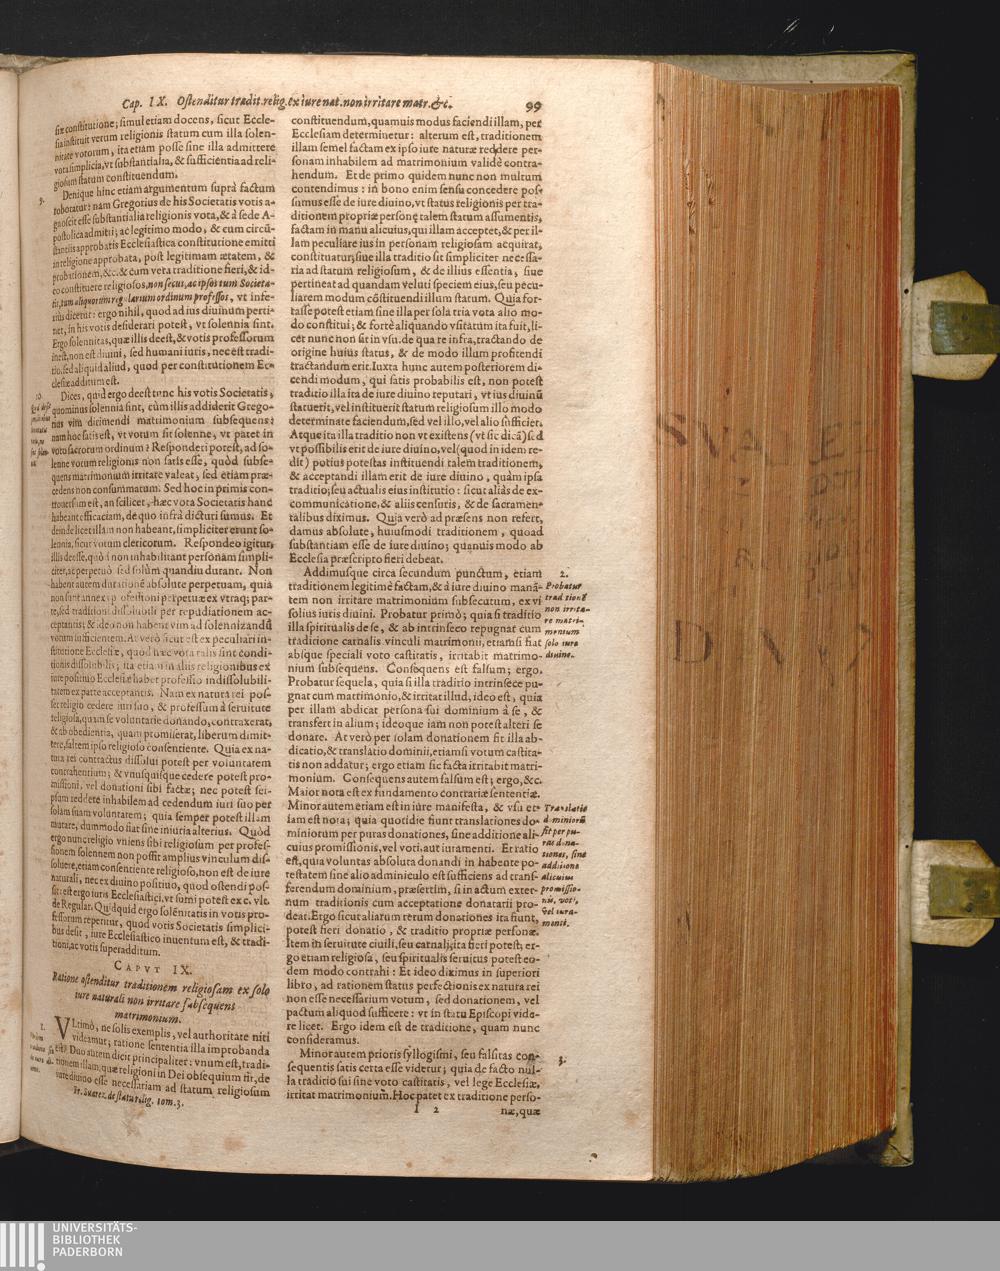 Cap. IX. Ostenditur tradit. relig. ex iure nat. non irritare matr. &c. 99
siæ constitutione; simul etiam docens, sicut Eccle-
sia instituit verum religionis statum cum illa solen-
nitate votorum, ita etiam posse sine illa admittere
vota simplicia, vt substantialia, & sufficientia ad reli-
giosum statum constituendum.
9.
Denique hinc etiam argumentum suprà factum
roboratur: nam Gregorius de his Societatis votis a-
gnoscit esse substantialia religionis vota, & à sede A-
postolica admitti; ac legitimo modo, & cum circũ-
stantiis approbatis Ecclesiastica constitutione emitti
in religione approbata, post legitimam ætatem, &
probationem, &c. & cum vera traditione fieri, & id-
eo constituere religiosos, non secus, ac ipsos tum Societa-
tis, tum aliquorum regularium ordinum professos, vt infe-
rius dicetur: ergo nihil, quod ad ius diuinum perti-
net, in his votis desiderari potest, vt solennia sint.
Ergo solennitas, quæ illis deest, & votis professorum
inest, non est diuini, sed humani iuris, nec est tradi-
tio, sed aliquid aliud, quod per constitutionem Ec-
clesiæ additum est.
10.
Dices, quid ergo deest tunc his votis Societatis,
quominus solennia sint, cùm illis addiderit Grego-
rius vim dirimendi matrimonium subsequens?
nam hoc satis est, vt votum sit solenne, vt patet in
voto sacrorum ordinum? Responderi potest, ad so-
lenne votum religionis non satis esse, quòd subse-
quens matrimonium irritare valeat, sed etiam præ-
cedens non consummatum. Sed hoc in primis con-
trouersum est, an scilicet, hæc vota Societatis hanc
habeant efficaciam, de quo infrà dicturi sumus. Et
deinde licet illam non habeant, simpliciter erunt so-
lennia, sicut votum clericorum. Respondeo igitur,
illis deesse, quòd non inhabilitant personam simpli-
citer, ac perpetuò sed solùm quandiu durant. Non
habent autem durationẽ absolute perpetuam, quia
non sunt annexa professioni perpetuæ ex vtraq; par-
te, sed traditioni dissolubili per repudiationem ac-
ceptantis; & ideo non habent vim ad solennizandũ
votum sufficientem. At verò sicut est ex peculiari in-
stitutione Ecclesiæ, quod hæc vota talis sint condi-
tionis dissolubilis; ita etiam in aliis religionibus ex
iure positiuo Ecclesiæ habet professio indissolubili-
tatem ex parte acceptantis. Nam ex natura rei pos-
set religio cedere iuri suo, & professum à seruitute
religiosa, quam se voluntarie donando, contraxerat,
& ab obedientia, quam promiserat, liberum dimit-
tere, saltem ipso religioso consentiente. Quia ex na-
tura rei contractus dissolui potest per voluntatem
contrahentium; & vnusquisque cedere potest pro-
missioni, vel donationi sibi factæ; nec potest sei-
psum reddere inhabilem ad cedendum iuri suo per
solam suam voluntatem; quia semper potest illam
mutare, dummodo fiat sine iniuria alterius. Quòd
ergo nunc religio vniens sibi religiosum per profes-
sionem solennem non possit amplius vinculum dis-
soluere, etiam consentiente religioso, non est de iure
naturali, nec ex diuino positiuo, quod ostendi pos-
sit: est ergo iuris Ecclesiastici, vt sumi potest ex c. vlt.
de Regular. Quidquid ergo solẽnitatis in votis pro-
fessorum reperitur, quod votis Societatis simplici-
bus desit, iure Ecclesiastico inuentum est, & tradi-
tioni, ac votis superadditum.
CAPVT IX.
Ratione ostenditur traditionem religiosam ex solo
iure naturali non irritare subsequens
matrimonium.
1.
VLtimò, ne solis exemplis, vel authoritate niti
videamur; ratione sententia illa improbanda
est. Duo autem dicit principaliter: vnum est, tradi-
tionem illam, quæ religioni in Dei obsequium fit, de
iure diuino esse necessariam ad statum religiosum
Fr. Suarez. de statu relig. tom. 3.
constituendum, quamuis modus faciendi illam, per
Ecclesiam determinetur: alterum est, traditionem
illam semel factam ex ipso iure naturæ reddere per-
sonam inhabilem ad matrimonium validè contra-
hendum. Et de primo quidem nunc non multum
contendimus: in bono enim sensu concedere pos-
sumus esse de iure diuino, vt status religionis per tra-
ditionem propriæ personę talem statum assumentis,
factam in manu alicuius, qui illam acceptet, & per il-
lam peculiare ius in personam religiosam acquirat,
constituatur; siue illa traditio sit simpliciter necessa-
ria ad statum religiosum, & de illius essentia, siue
pertineat ad quandam veluti speciem eius, seu pecu-
liarem modum cõstituendi illum statum. Quia for-
tasse potest etiam sine illa per sola tria vota alio mo-
do constitui; & fortè aliquando vsitatum ita fuit, li-
cèt nunc non sit in vsu. de qua re infra, tractando de
origine huius status, & de modo illum profitendi
tractandum erit. Iuxta hunc autem posteriorem di-
cendi modum, qui satis probabilis est, non potest
traditio illa ita de iure diuino reputari, vt ius diuinũ
statuerit, vel instituerit statum religiosum illo modo
determinate faciendum, sed vel illo, vel alio sufficiet.
Atque ita illa traditio non vt existens (vt sic dicã) sed
vt possibilis erit de iure diuino, vel (quod in idem re-
dit) potius potestas instituendi talem traditionem,
& acceptandi illam erit de iure diuino, quàm ipsa
traditio; seu actualis eius institutio: sicut aliàs de ex-
communicatione, & aliis censuris, & de sacramen-
talibus diximus. Quia verò ad præsens non refert,
damus absolute, huiusmodi traditionem, quoad
substantiam esse de iure diuino; quamuis modo ab
Ecclesia præscripto fieri debeat.
2.
Addimusque circa secundum punctum, etiam
traditionem legitimè factam, & à iure diuino manã-
tem non irritare matrimonium subsecutum, ex vi
solius iuris diuini. Probatur primò; quia si traditio
illa spiritualis de se, & ab intrinseco repugnat cum
traditione carnalis vinculi matrimonii, etiamsi fiat
absque speciali voto castitatis, irritabit matrimo-
nium subsequens. Consequens est falsum; ergo.
Probatur sequela, quia si illa traditio intrinsece pu-
gnat cum matrimonio, & irritat illud, ideo est, quia
per illam abdicat persona sui dominium à se, &
transfert in alium; ideoque iam non potest alteri se
donare. At verò per solam donationem fit illa ab-
dicatio, & translatio dominii, etiamsi votum castita-
tis non addatur; ergo etiam sic facta irritabit matri-
monium. Consequens autem falsum est; ergo, &c.
Maior nota est ex fundamento contrariæ sententiæ.
Minor autem etiam est in iure manifesta, & vsu et-
iam est nota; quia quotidie fiunt translationes do-
miniorum per puras donationes, sine additione ali-
cuius promissionis, vel voti, aut iuramenti. Et ratio
est, quia voluntas absoluta donandi in habente po-
testatem sine alio adminiculo est sufficiens ad trans-
ferendum dominium, præsertim, si in actum exter-
num traditionis cum acceptatione donatarii pro-
deat. Ergo sicut aliarum rerum donationes ita fiunt,
potest fieri donatio, & traditio propriæ personæ.
Item in seruitute ciuili, seu carnali, ita fieri potest; er-
go etiam religiosa, seu spiritualis seruitus potest eo-
dem modo contrahi: Et ideo diximus in superiori
libro, ad rationem status perfectionis ex natura rei
non esse necessarium votum, sed donationem, vel
pactum aliquod sufficere: vt in statu Episcopi vide-
re licet. Ergo idem est de traditione, quam nunc
consideramus.
3.
Minor autem prioris syllogismi, seu falsitas con-
sequentis satis certa esse videtur; quia de facto nul-
la traditio sui sine voto castitatis, vel lege Ecclesiæ,
irritat matrimonium. Hoc patet ex traditione perso-
I 2 næ, quæ
Probatur
traditionẽ
non irrita-
re matri-
monium
solo iure
diuino.
Translatio
dominiorũ
fit per pu-
ras dona-
tiones, sine
additione
alicuius
promissio-
nis, voti,
vel iura-
menti.
UNIVERSITÄTS-
BIBLIOTHEK
PADERBORN